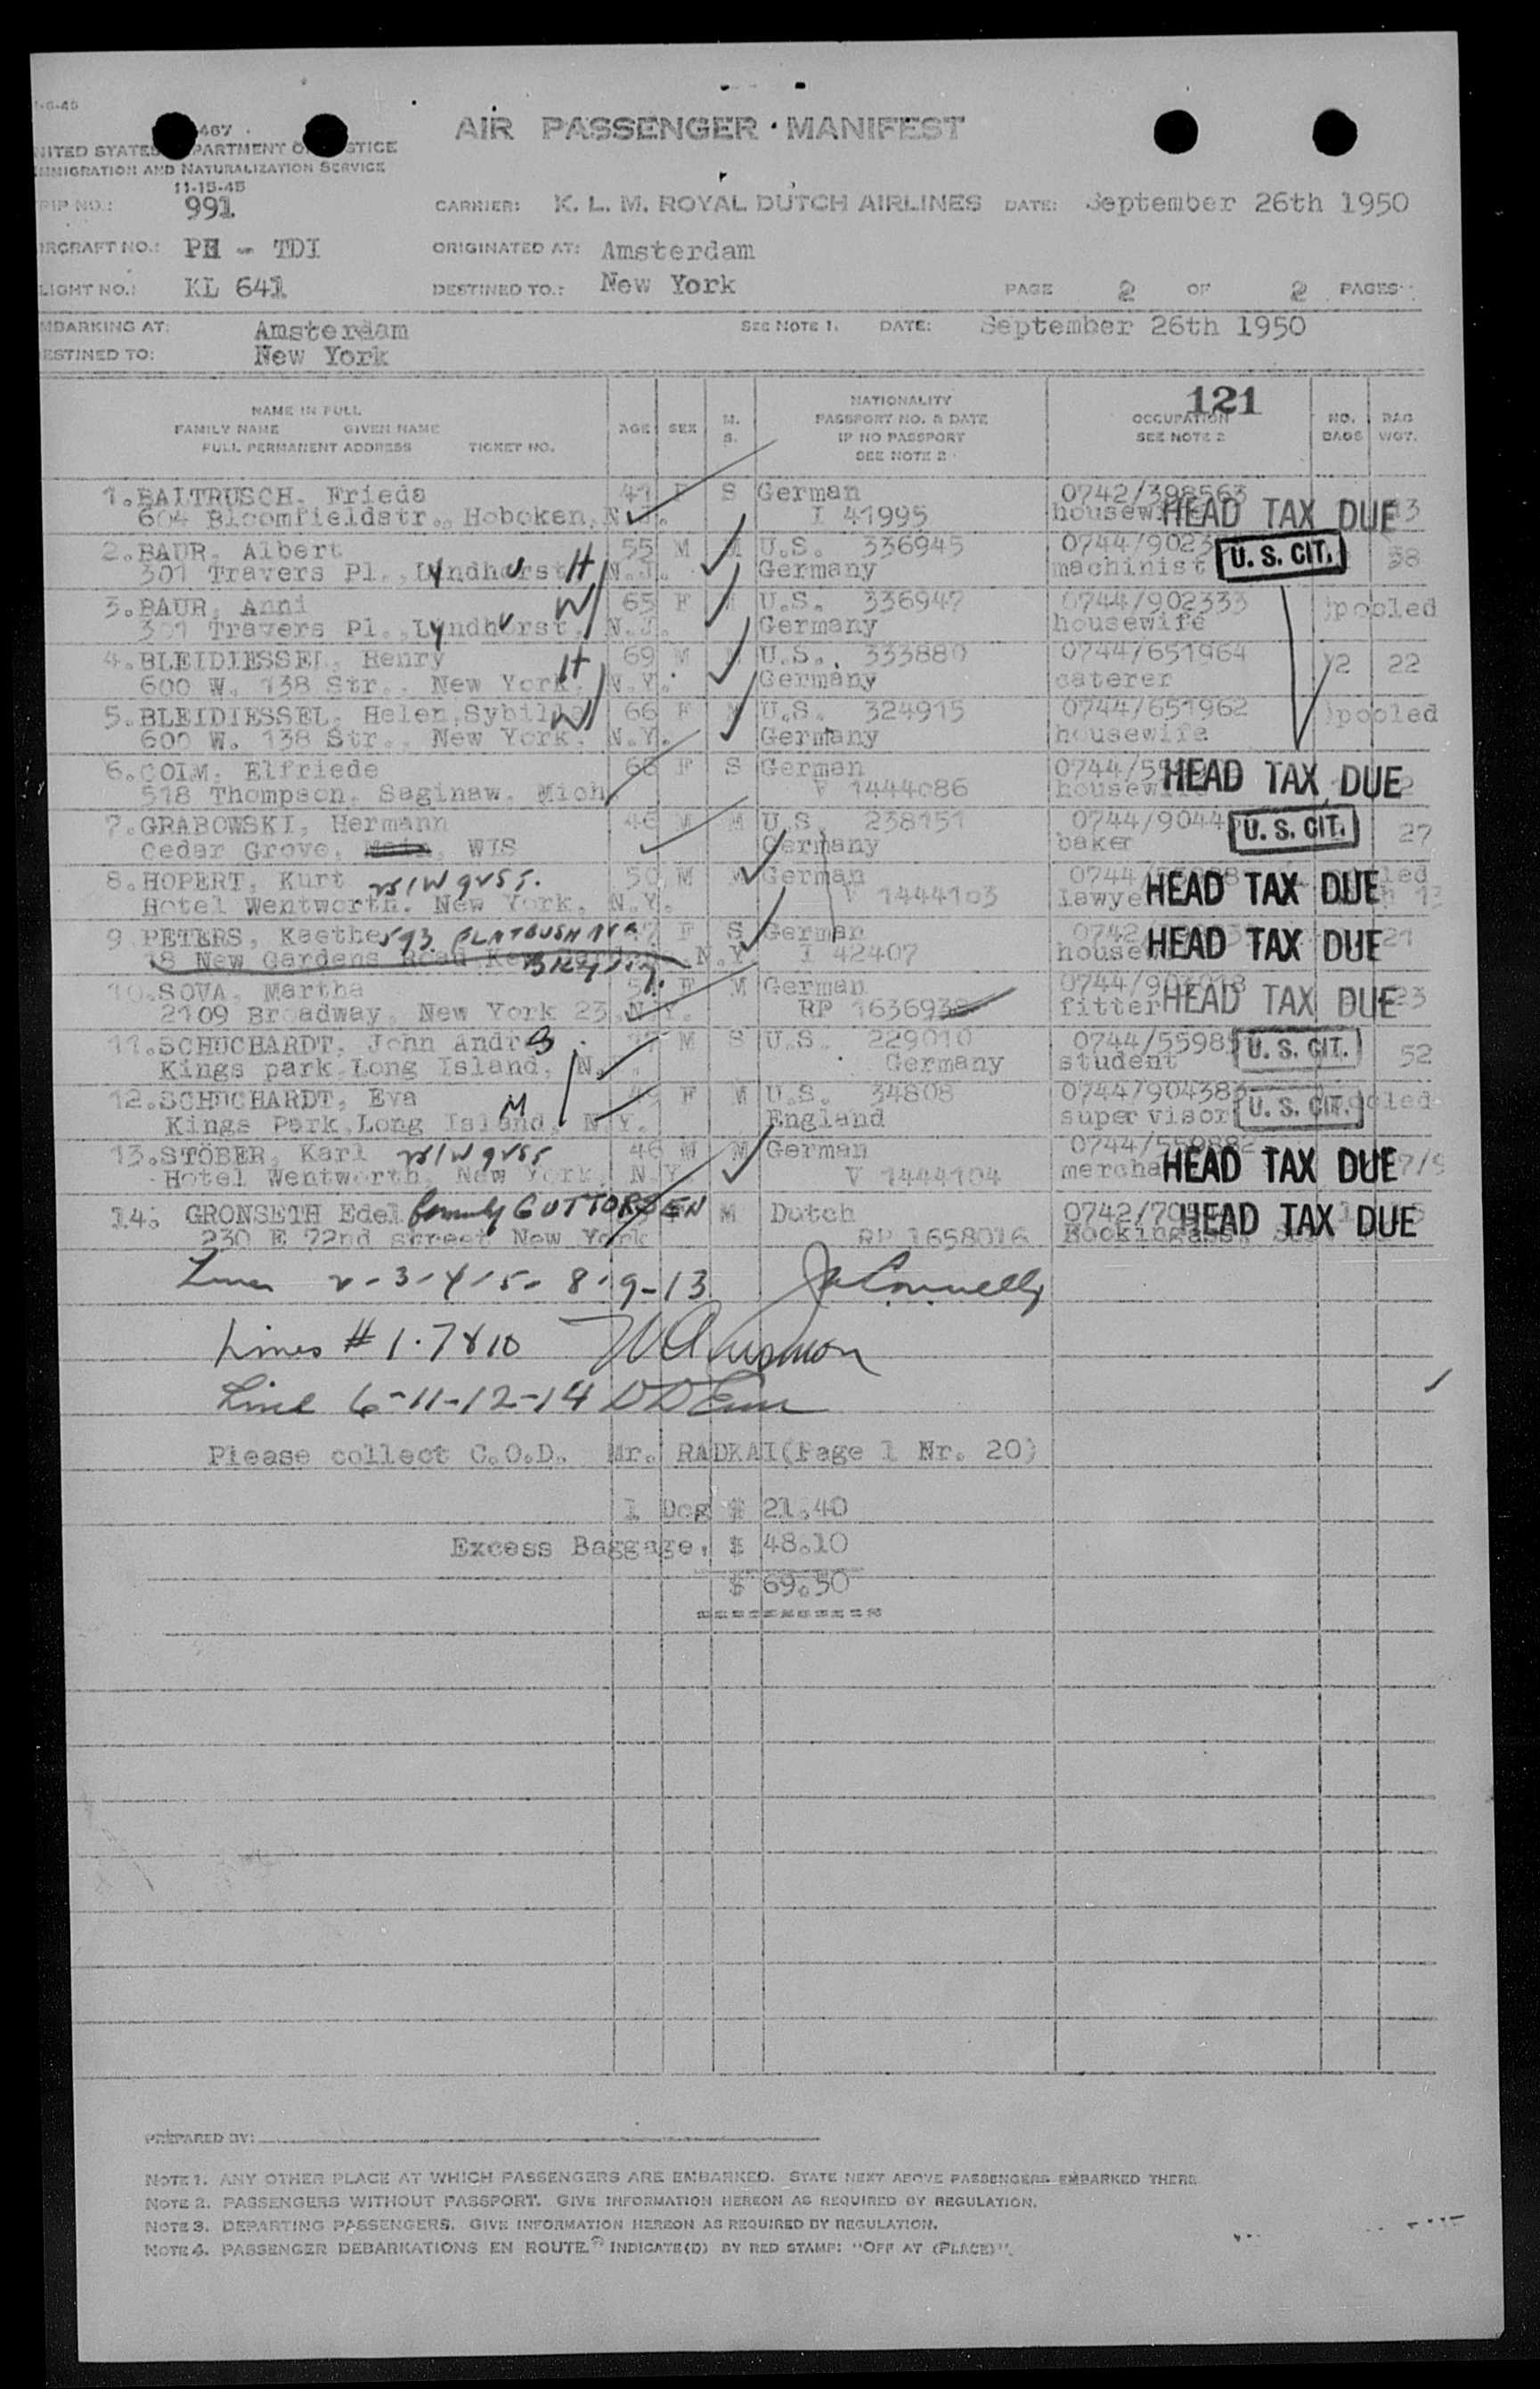 1-6-45
467
NITED STATES DEPARTMENT OF JUSTICE
IMMIGRATION AND NATURALIZATION SERVICE
11-15-45
AIR PASSENGER MANIFEST
RIP NO.: 991 CARRIER: K. L. M. ROYAL DUTCH AIRLINES DATE: September 26th 1950
IRCRAFT NO.: PH - TDI ORIGINATED AT: Amsterdam
LIGHT NO.: KL 641 DESTINED TO.: New York PAGE 2 OF 2 PAGES
MBARKING AT: Amsterdam SEE NOTE 1. DATE: September 26th 1950
ESTINED TO: New York
121
NAME IN FULL
FAMILY NAME GIVEN NAME
FULL PERMANENT ADDRESS TICKET NO.
AGE SEX M. S.
NATIONALITY
PASSPORT NO. & DATE
IF NO PASSPORT
SEE NOTE 2
OCCUPATION
SEE NOTE 2
NO. BAGS BAG WGT.
1. BALTRUSCH, Frieda 41 F S German 0742/398563
604 Bloomfieldstr., Hoboken, N.J. I 41995 housewife HEAD TAX DUE
2. BAUR, Albert 55 M M U.S. 336945 0744/9023 U. S. CIT. 38
301 Travers Pl., Lyndhurst H N.J. Germany machinist
3. BAUR, Anni W 65 F M U.S. 336947 0744/902333 )pooled
301 Travers Pl., Lyndhurst, N.J. Germany housewife
4. BLEIDIESSEL, Henry H 69 M M U.S. 333880 0744/651964 )2 22
600 W. 138 Str., New York, N.Y. Germany caterer
5. BLEIDIESSEL, Helen, Sybilla W 66 F M U.S. 324915 0744/651962 )pooled
600 W. 138 Str., New York, N.Y. Germany housewife
6. COLM, Elfriede 68 F S German 0744/55 HEAD TAX DUE
518 Thompson, Saginaw, Mich. V 1444086 housewife
7. GRABOWSKI, Hermann 46 M M U.S. 238151 0744/9044 U. S. CIT. 27
Cedar Grove, WIS Germany baker
8. HOPERT, Kurt 50 M M German 0744/ HEAD TAX DUE
Hotel Wentworth, New York, N.Y. V 1444103 lawyer
9 PETERS, Kaethe 593 FLATBUSH AVE 47 F S German 0742/ HEAD TAX DUE 21
18 New Gardens Road Kew Gardens, N.Y. Bklyn N.Y. I 42407 house
10. SOVA, Martha F M German HEAD TAX DUE 23
2109 Broadway, New York 23, N.Y. RP 1636938 fitter
11. SCHUCHARDT, John Andre S 17 M S U.S. 229010 0744/55985 U. S. CIT. 52
Kings park, Long Island, N.Y. Germany student
12. SCHUCHARDT, Eva M F M U.S. 34808 0744/904383 U. S. CIT. pooled
Kings Park, Long Island, N.Y. England supervisor
13. STÖBER, Karl 46 M M German 0744/559882 HEAD TAX DUE
Hotel Wentworth, New York, N.Y. V 1444104 merchant
14. GRONSETH Edel formerly GUTTORSEN M Dutch 0742/70 HEAD TAX DUE
230 E 72nd street New York RP 1658016
Lines 2-3-4-5-8-9-13 Connelly
Lines # 1.7 & 10
Line 6-11-12-14
Please collect C.O.D. Mr. RADKAI(Page 1 Nr. 20)
1 Dog $ 21.40
Excess Baggage, $ 48.10
$ 69.50
===========
PREPARED BY:
NOTE 1. ANY OTHER PLACE AT WHICH PASSENGERS ARE EMBARKED. STATE NEXT ABOVE PASSENGERS EMBARKED THERE.
NOTE 2. PASSENGERS WITHOUT PASSPORT. GIVE INFORMATION HEREON AS REQUIRED BY REGULATION.
NOTE 3. DEPARTING PASSENGERS. GIVE INFORMATION HEREON AS REQUIRED BY REGULATION.
NOTE 4. PASSENGER DEBARKATIONS EN ROUTE. INDICATE(D) BY RED STAMP: "OFF AT (PLACE)".